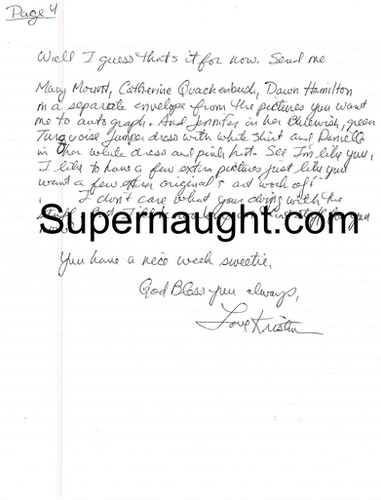 Page 4
Well I guess that's it for now. Send me
Mary Mornot, Catherine Quackenbush, Dawn Hamilton
in a separate envelope from the pictures you want
me to autograph. And Jennifer in her Bluewish, green
Turquoise Jumper dress with white shirt and Danielle
in her white dress and pink hat. See I'm like you,
I like to have a few extra pictures just like you
want a few extra original's art work of!
I don't care what your doing with the
Supernaught.com
You have a nice week sweetie,
God Bless you always,
Love Kristin